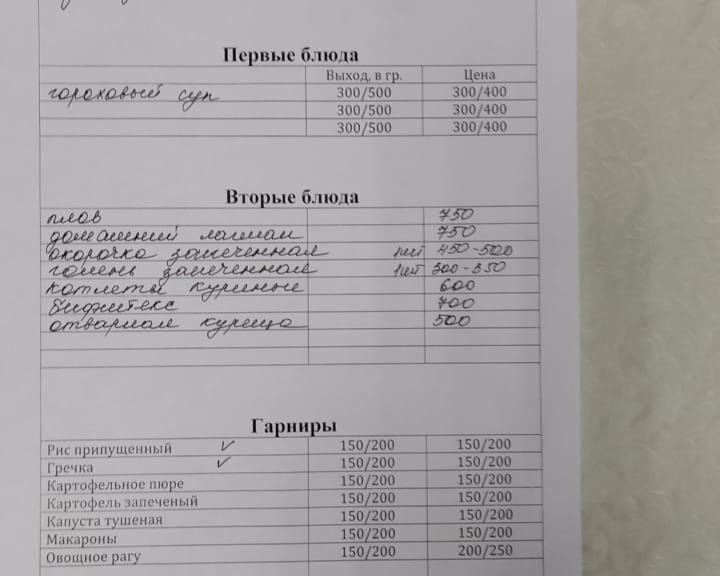 Первые блюда
Выход, в гр. Цена
гороховый суп 300/500 300/400
300/500 300/400
300/500 300/400
Вторые блюда
плов 750
домашний лагман 750
окорочка запеченная 1шт 450-500
голень запеченная 1шт 300-350
котлеты куриные 600
бифштекс 700
отварная курица 500
Гарниры
Рис припущенный ✓ 150/200 150/200
Гречка ✓ 150/200 150/200
Картофельное пюре 150/200 150/200
Картофель запеченый 150/200 150/200
Капуста тушеная 150/200 150/200
Макароны 150/200 150/200
Овощное рагу 150/200 200/250